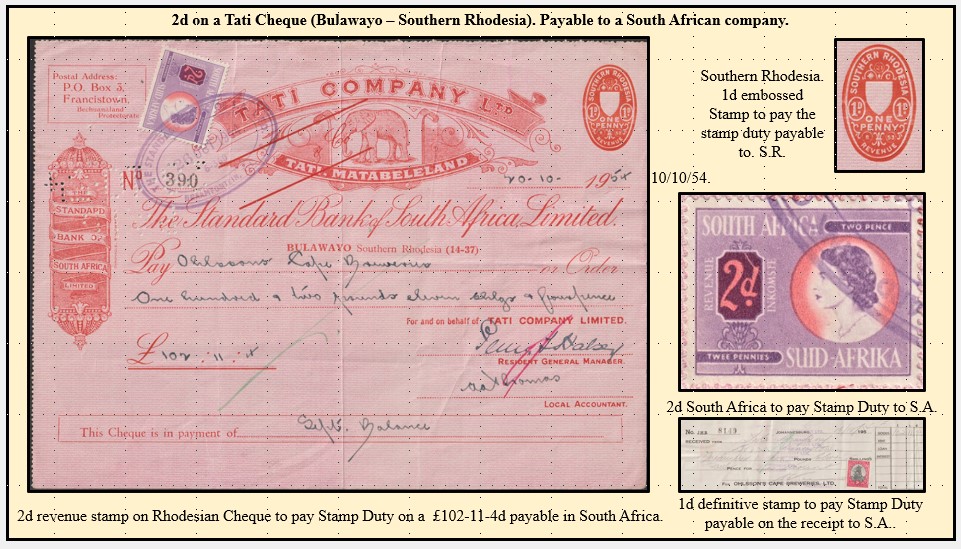 2d on a Tati Cheque (Bulawayo – Southern Rhodesia). Payable to a South African company.
Postal Address:
P.O. Box 3,
Francistown,
Bechuanaland
Protectorate
TATI COMPANY LTD
TATI. MATABELELAND
No 390
20-10- 1954
10/10/54.
STANDARD
BANK OF
SOUTH AFRICA
LIMITED
The Standard Bank of South Africa, Limited
BULAWAYO Southern Rhodesia (14-37)
Pay Ohlssons Cape Breweries or Order
One hundred & two pounds eleven shlgs & fourpence
For and on behalf of TATI COMPANY LIMITED.
£102 : 11 : 4
RESIDENT GENERAL MANAGER.
LOCAL ACCOUNTANT.
This Cheque is in payment of Sept. Balance
SOUTHERN RHODESIA
1D 1D
ONE PENNY
REVENUE
Southern Rhodesia.
1d embossed
Stamp to pay the
stamp duty payable
to. S.R.
SOUTHERN RHODESIA
1D 1D
ONE PENNY
REVENUE
SOUTH AFRICA
TWO PENCE
REVENUE
2d
INKOMSTE
TWEE PENNIES
SUID-AFRIKA
2d South Africa to pay Stamp Duty to S.A.
No. 8149
For OHLSSON'S CAPE BREWERIES, LTD.
1d definitive stamp to pay Stamp Duty
payable on the receipt to S.A..
2d revenue stamp on Rhodesian Cheque to pay Stamp Duty on a £102-11-4d payable in South Africa.